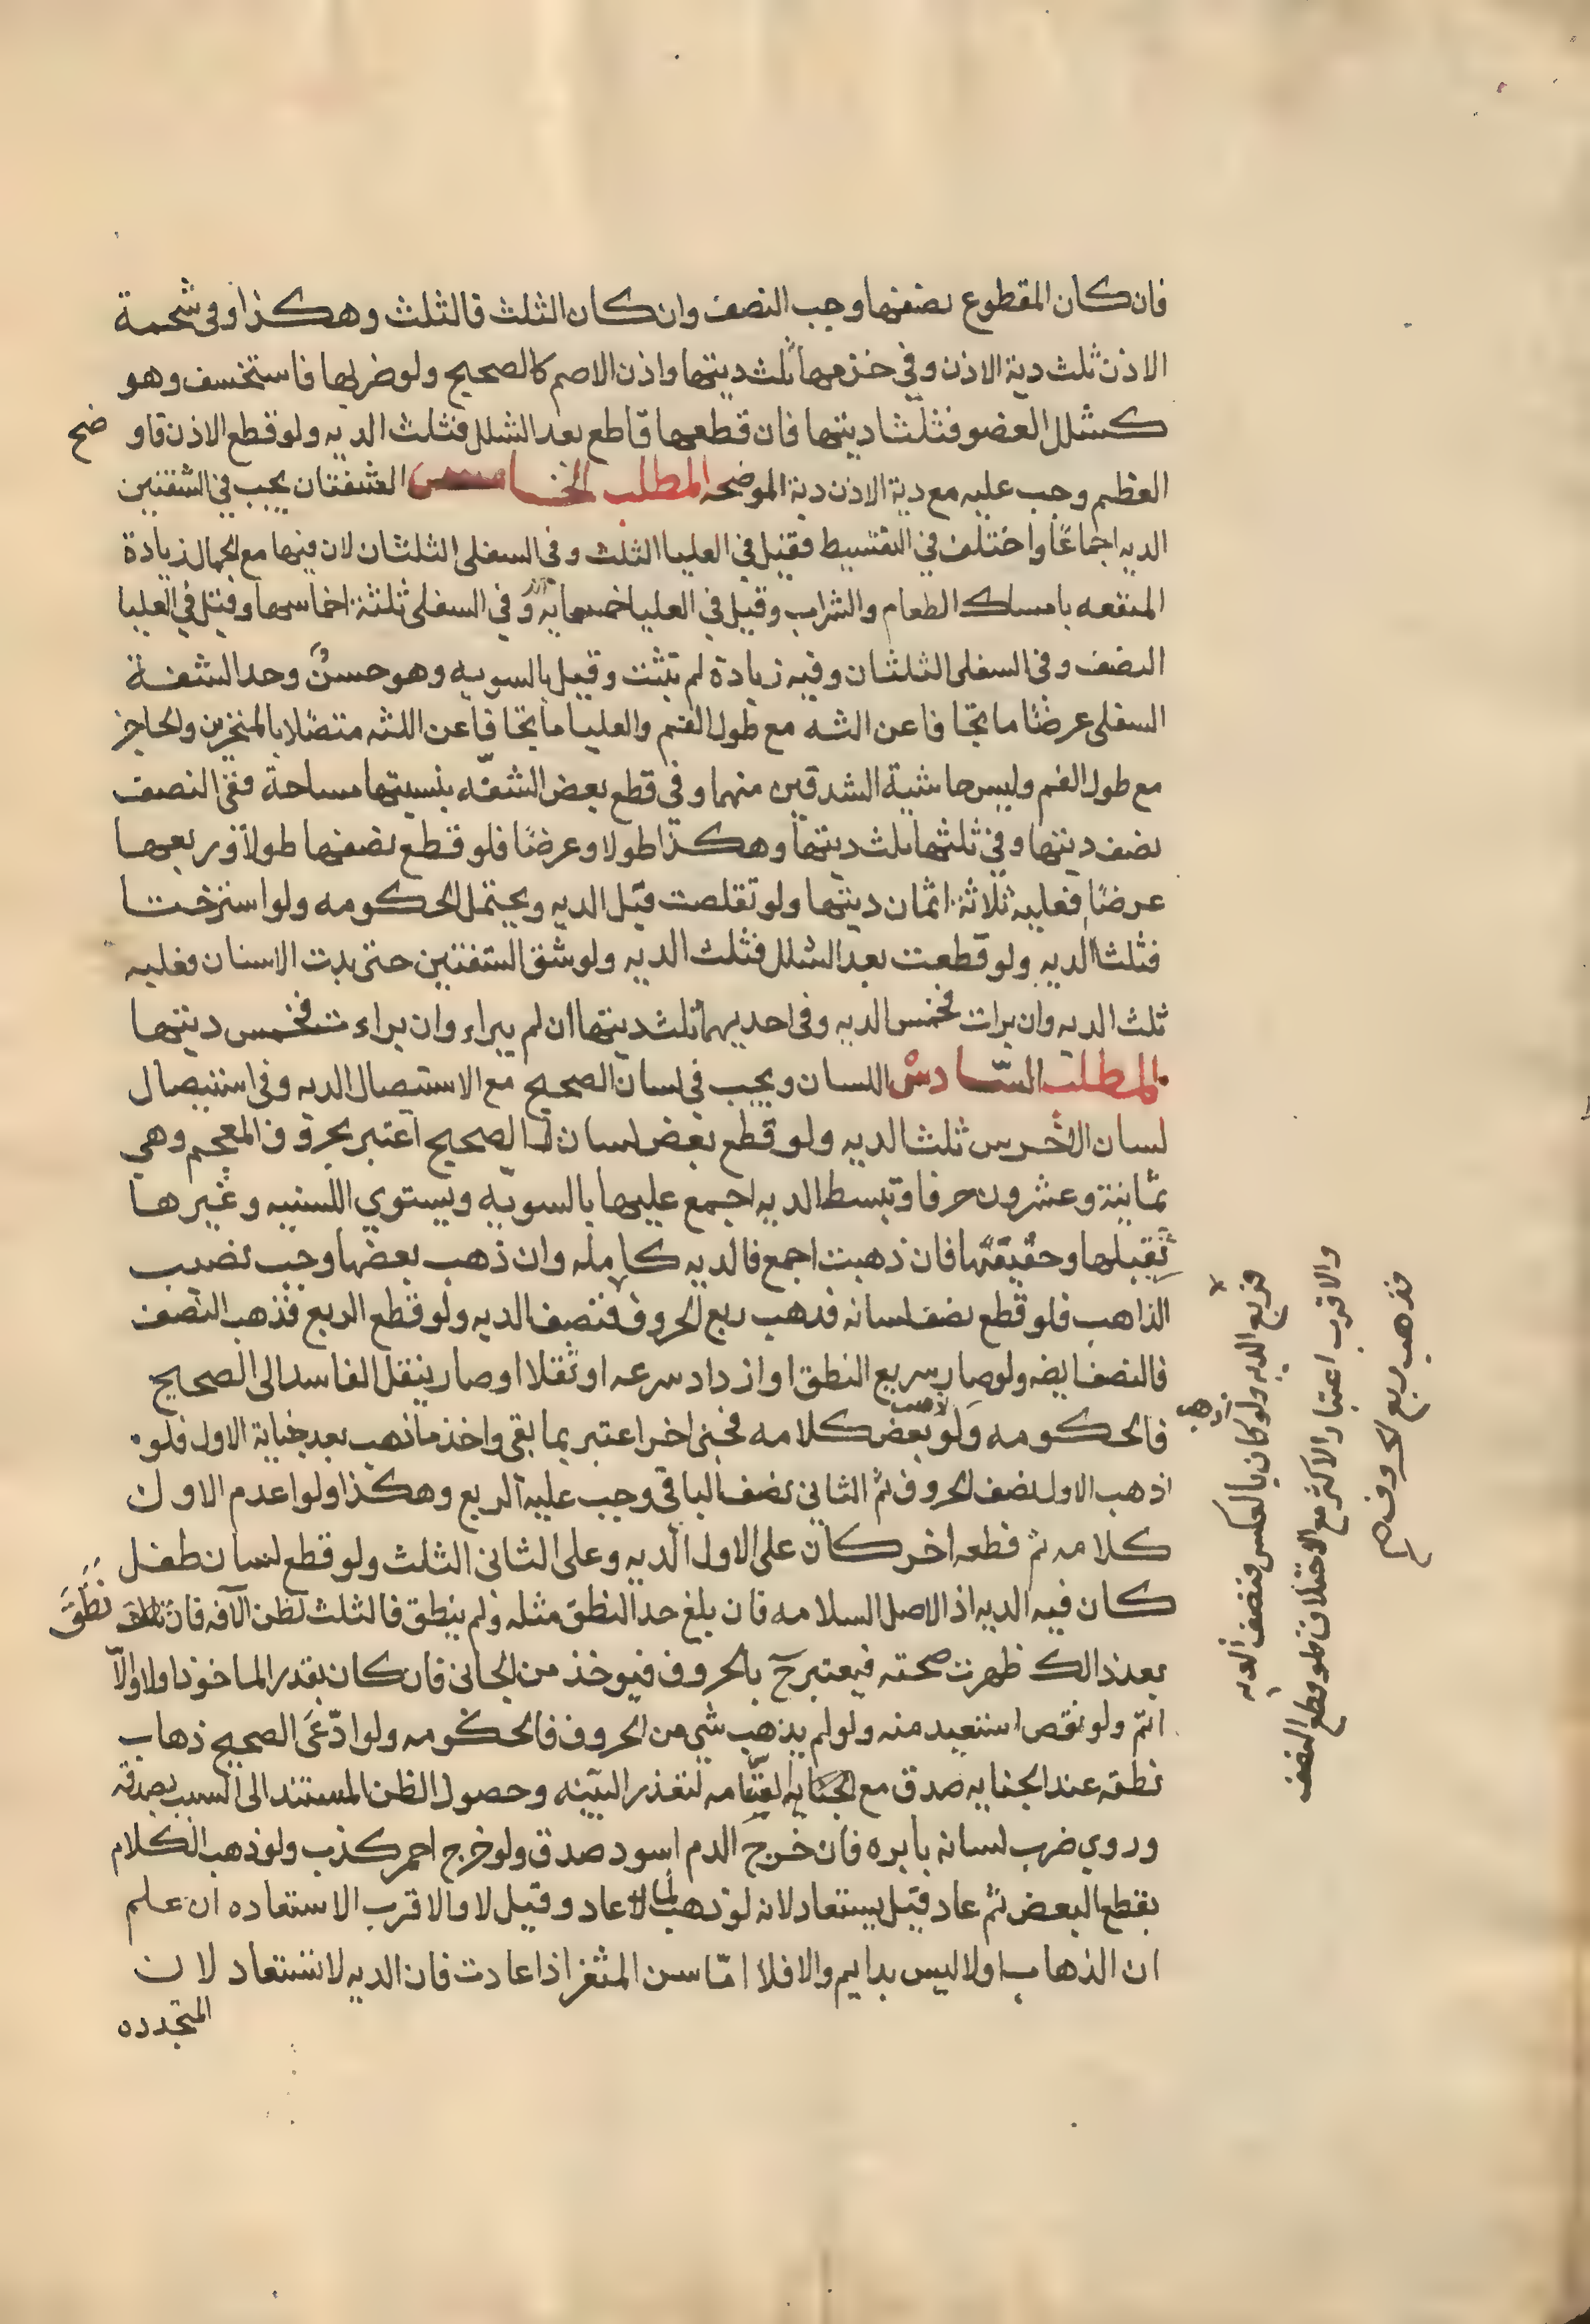 فان كان المقطوع نصفها وجب النصف وان كان الثلث فالثلث وهكذا وفى شحمة
الاذن ثلث دية الاذن وفي خزمها ثلث ديتها واذن الاصم كالصحيح ولو ضربها فاستخسف وهو
كشلل العضو فثلثا ديتها فان قطعها قاطع بعد الشلل فثلث الديه ولو قطع الاذن فاو
ضح
العظم وجب عليه مع دية الاذن دية الموضحه المطلب الخامس الشفتان يجب في الشفتين
الديه اجماعًا واختلف في التقسيط فقيل في العليا الثلث وفي السفلى الثلثان لان فيها مع الجمال زيادة
المنفعه بامساك الطعام والشراب وقيل في العليا خمسمايه وفي السفلى ثلثة اخماسها وقيل في العليا
النصف وفى السفلى الثلثان وفيه زيادة لم تثبت وقيل بالسويه وهو حسن وحد الشفة
السفلى عرضًا ما تجافا عن اللثه مع طول الفم والعليا ما تجافا عن اللثه متصلا بالمنخرين والحاجز
مع طول الفم وليس حاشية الشدقين منهما وفي قطع بعض الشفه بنسبتها مساحة ففى النصف
نصف ديتها وفي ثلثها ثلث ديتها وهكذا طولا وعرضًا فلو قطع نصفها طولا وربعها
عرضًا فعليه ثلاثة اثمان ديتها ولو تقلصت قيل الديه ويحتمل الحكومه ولو استرختا
فثلثا الديه ولو قطعت بعد الشلل فثلث الديه ولو شق الشفتين حتى بدت الاسنان فعليه
ثلث الديه وان برات فخمس الديه وفى احديهما ثلث ديتها ان لم يبراء وان براءت فخمس ديتها
المطلب السّادس اللسان ويجب في لسان الصحيح مع الاستيصال الديه وفى استيصال
لسان الاخرس ثلث الديه ولو قطع بعض لسان الصحيح اعتبر بحروف المعجم وهي
ثمانية وعشرون حرفا وتبسط الديه اجمع عليها بالسويّه ويستوي اللسنيه وغيرها
ثقيلها وخفيفها فان ذهبت اجمع فالديه كامله وان ذهب بعضها وجب نصيب
الذاهب فلو قطع نصف لسانه فذهب ربع الحروف فنصف الديه ولو قطع الربع فذهب النصف
فالنصف ايضه ولو صار سريع النطق او ازداد سرعه او ثقلا او صار ينقل الفاسد الى الصحيح
فالحكومه ولو اذهب بعض كلامه فجنى اخر اعتبر بما بقى واخذ ما ذهب بعد جناية الاول فلو
اذهب
اذهب الاول نصف الحروف ثم الثاني نصف الباقى وجب عليه الربع وهكذا ولو اعدم الاول
كلامه ثم قطعه اخر كان على الاول الديه وعلى الثانى الثلث ولو قطع لسان طفل
كان فيه الديه اذ الاصل السلامه فان بلغ حد النطق مثله ولم ينطق فالثلث لظن الآفه فان
نطق
بعد ذالك ظهرت صحته فيعتبر ح بالحروف فيوخذ من الجانى فان كان بقدر الماخوذ اولا والاّ
اتم ولو نقص استعيد منه ولو لم يذهب شي من الحروف فالحكومه ولو ادّعى الصحيح ذهاب
نطقه عند الجنايه صدق مع القسامه لتعذر البيّنه وحصول الظن المستند الى السبب بصدقه
وروي ضرب لسانه بابره فان خرج الدم اسود صدق ولو خرج احمر كذب ولو ذهب الكلام
بقطع البعض ثم عاد قيل يستعاد لانه لو ذهب لما عاد وقيل لا والاقرب الاستعاده ان علم
ان الذهاب اولا ليس بدايم والا فلا امّا سن المثغر اذا عادت فان الديه لا تستعاد لان
المتجدده
فربع الديه ولو كان بالعكس فنصف الديه
والاقرب اعتبار الاكثر مع الاختلاف فلو قطع النصف
فذهب ربع الحروف